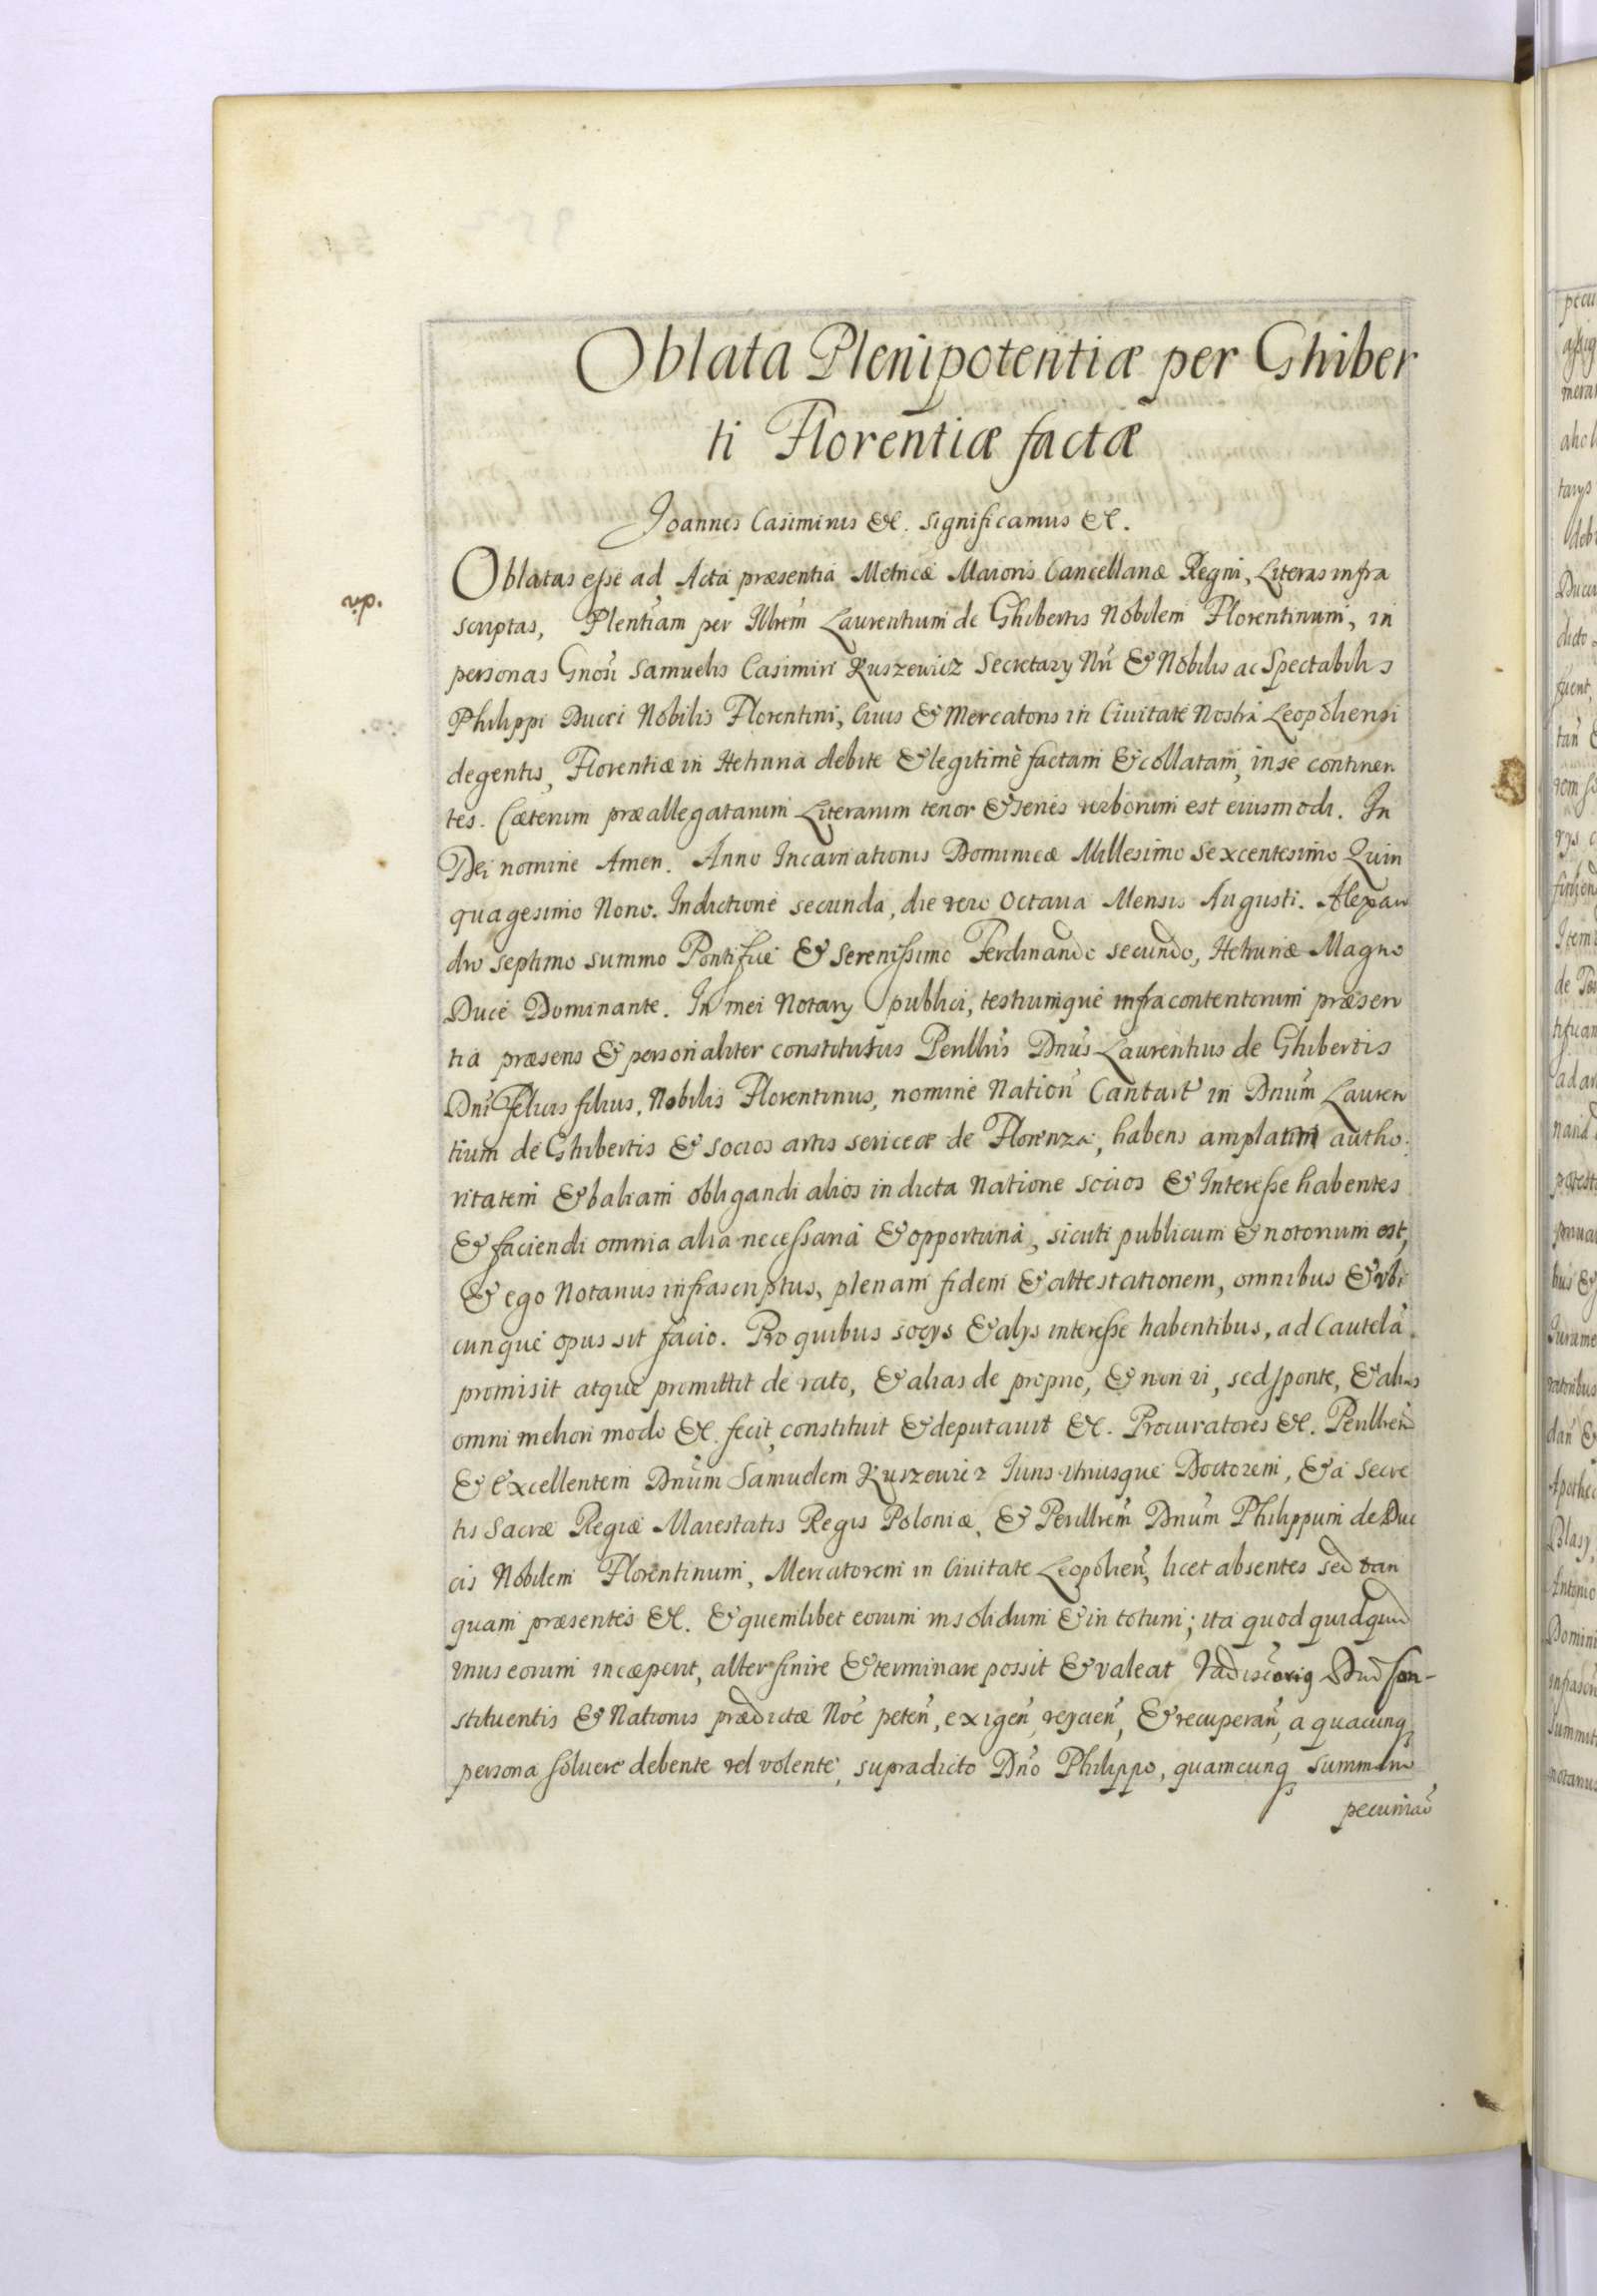 Oblata Plenipotentiæ per Ghiber
ti Florentiæ factæ
Joannes Casimirus &c. significamus &c.
Oblatas esse ad Acta præsentia Metricæ Maioris Cancellariæ Regni, Literas infra
v.p.
scriptas, Plentiam per Illrem Laurentium de Ghibertis Nobilem Florentinum, in
personas Gnosi Samuelis Casimiri Kuszewicz Secretarij Nri & Nobilis ac Spectabilis
Philippi Ducci Nobilis Florentini, Ciuis & Mercatoris in Ciuitate Nostra Leopoliensi
degentis, Florentiæ in Hetruria debite & legitimè factam & collatam, in se continen
tes. Cæterum præallegatarum Literarum tenor & series verborum est eiusmodi. In
Dei nomine Amen. Anno Incarnationis Dominicæ Millesimo Sexcentesimo Quin
quagesimo Nono. Indictione secunda, die vero Octaua Mensis Augusti. Alexan
dro septimo summo Pontifice & Serenissimo Ferdinando secundo, Hetruriæ Magno
Duce Dominante. In mei Notarij publici, testiumque infracontentorum præsen
tia præsens & personaliter constitutus Perillris Dnus Laurentius de Ghibertis
Dni filius, Nobilis Florentinus, nomine Nation Cantart in Dnum Lauren
tium de Ghibertis & socios artis sericeæ de Florenza, habens amplam autho
ritatem & baliam obligandi alios in dicta Natione socios & Interesse habentes
& faciendi omnia alia necessaria & opportuna, sicuti publicum & notorium est,
& ego Notarius infrascriptus, plenam fidem & attestationem, omnibus & vbi
cunque opus sit facio. Pro quibus socijs & alijs interesse habentibus, ad Cautelã
promisit atque promittit de rato, & alias de proprio, & non vi, sed sponte, & alias
omni meliori modo &c. fecit, constituit & deputauit &c. Procuratores &c. Perillrem
& Excellentem Dnum Samuelem Kuszewicz Iuris vtriusque Doctorem, & à Secre
tis Sacræ Regiæ Maiestatis Regis Poloniæ, & Perillrem Dnum Philippum de Duc
cis Nobilem Florentinum, Mercatorem in Ciuitate Leopolien, licet absentes sed tan
quam præsentes &c. & quemlibet eorum insolidum & in totum; ita quod quidquid
vnus eorum incæperit, alter finire & terminare possit & valeat Dni Con-
stituentis & Nationis prædictæ Noe peten, exigen, rejcien, & recuperan, a quacunq
persona soluere debente vel volente, supradicto Dno Philippo, quamcunq summam
pecuniaru